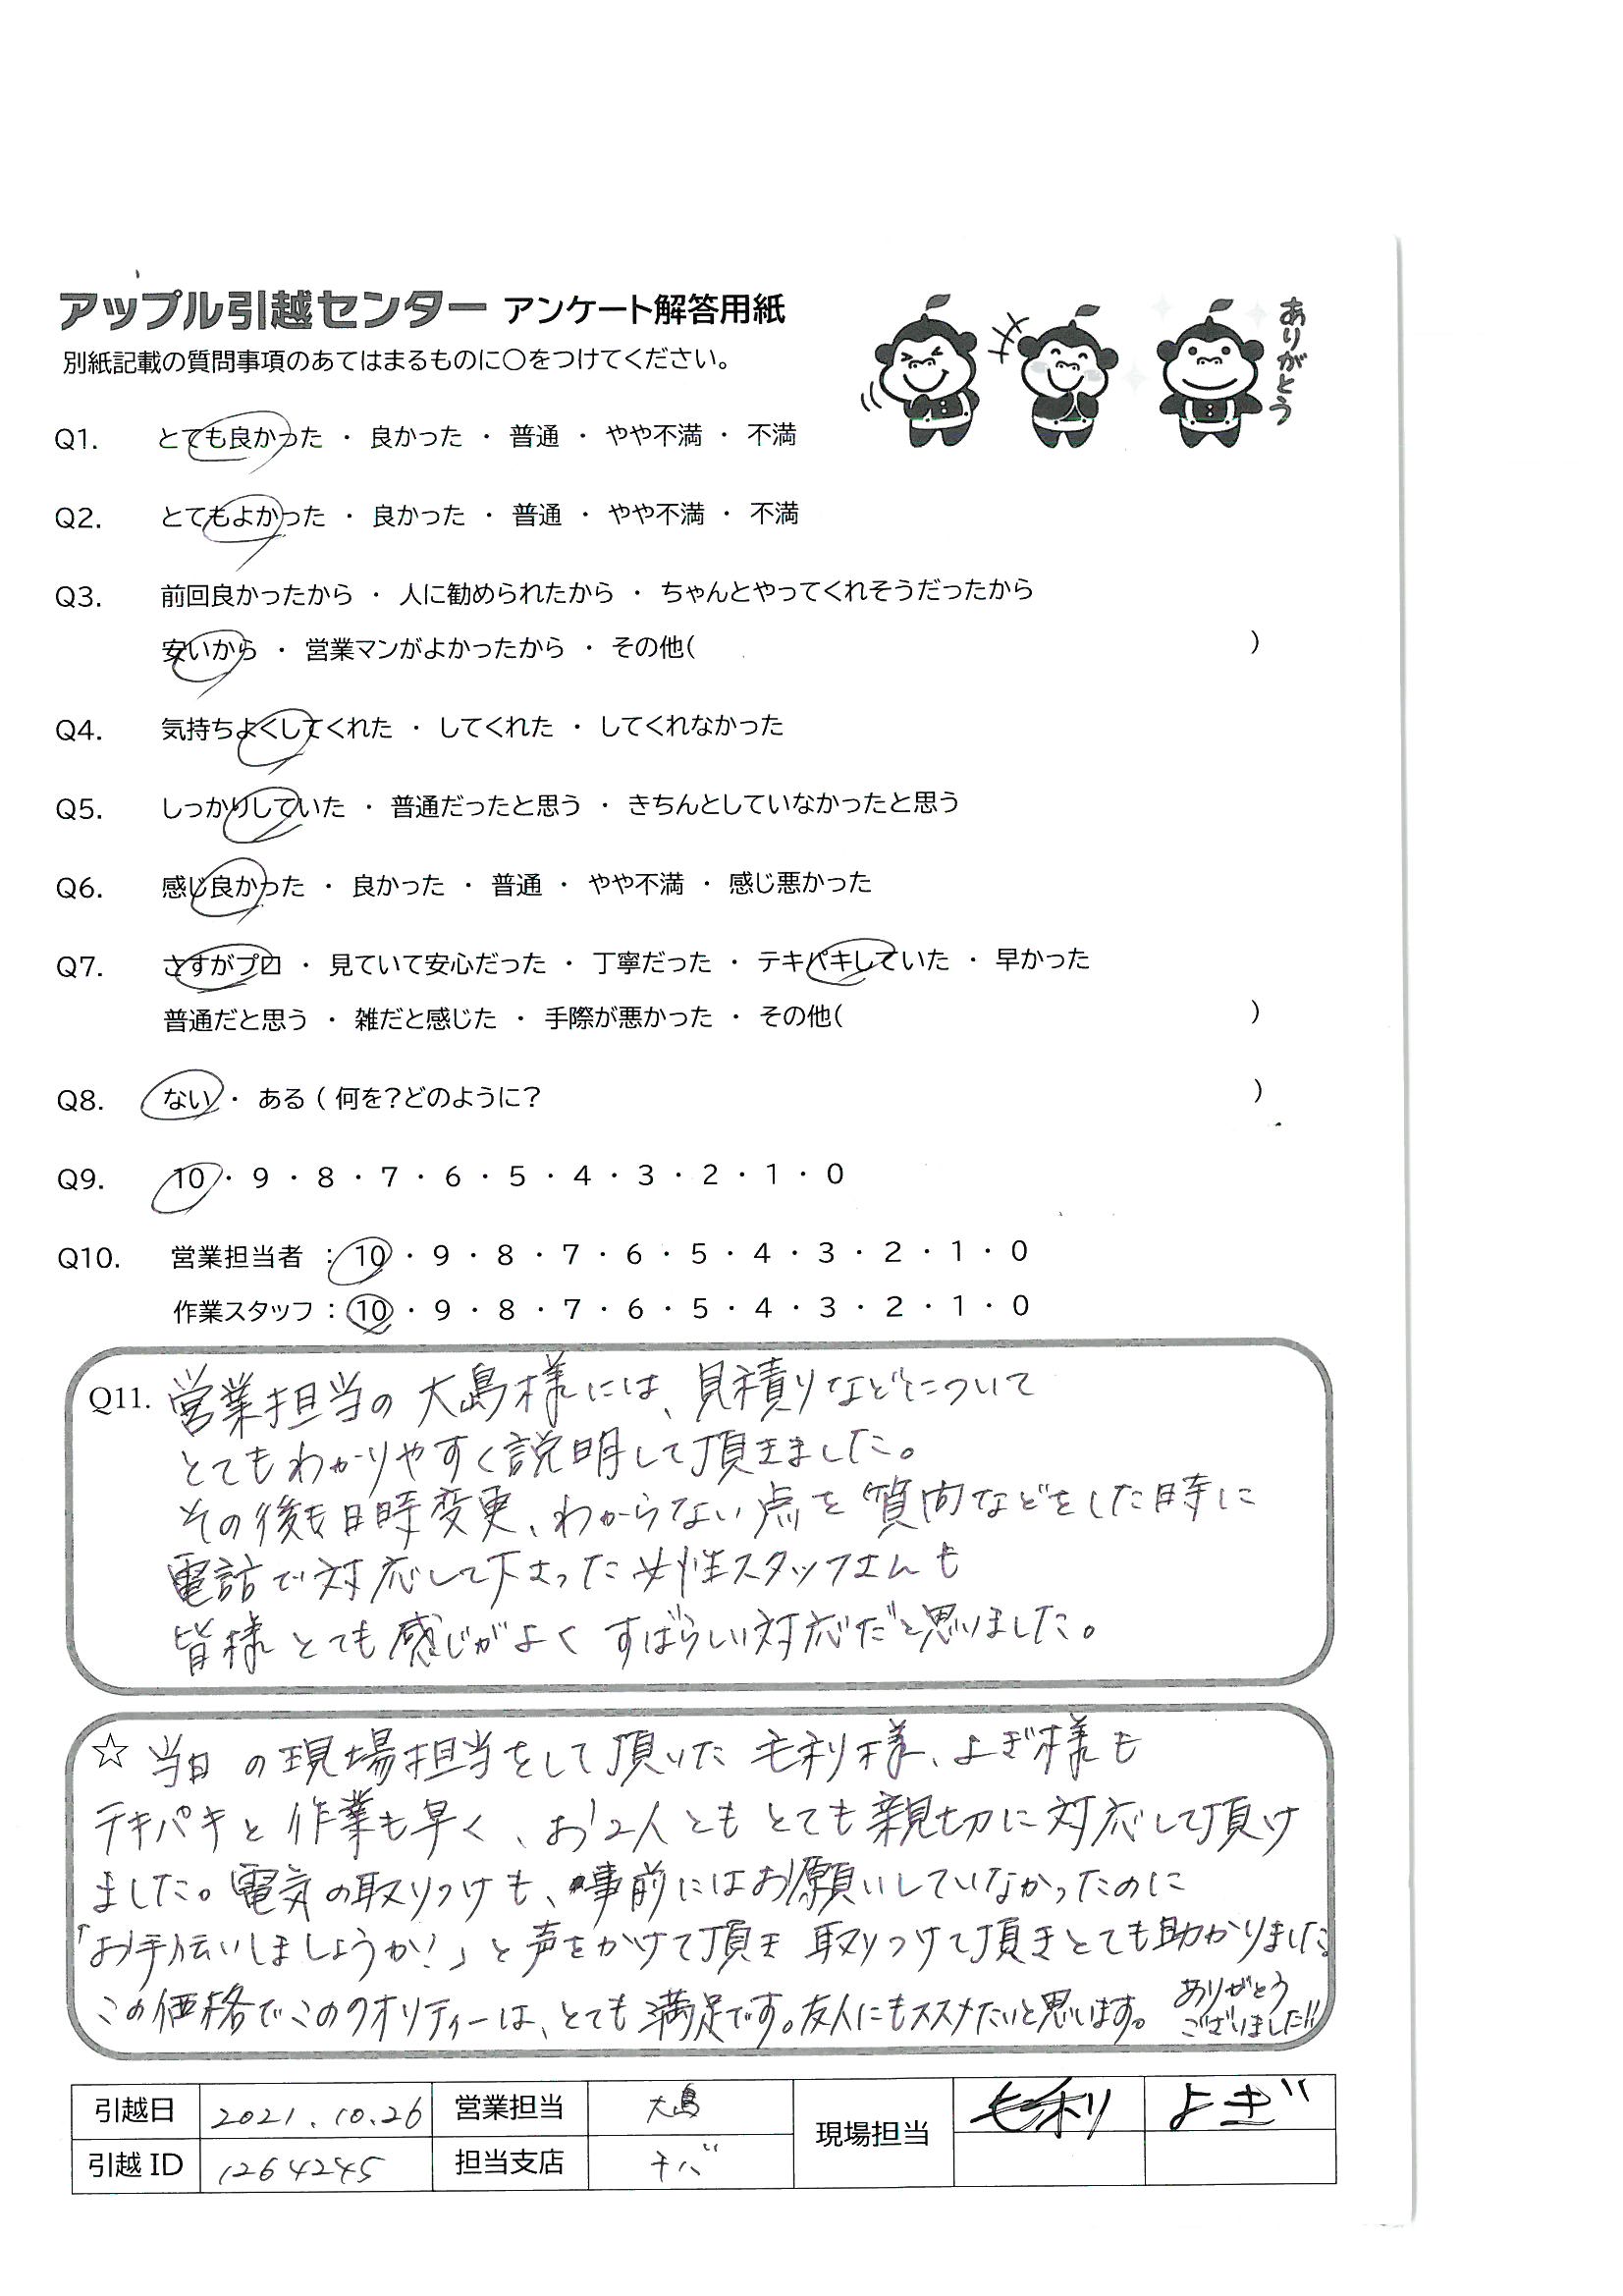 アップル引越センター アンケート解答用紙
別紙記載の質問事項のあてはまるものに○をつけてください。
ありがとう
Q1. とても良かった ・ 良かった ・ 普通 ・ やや不満 ・ 不満
Q2. とてもよかった ・ 良かった ・ 普通 ・ やや不満 ・ 不満
Q3. 前回良かったから ・ 人に勧められたから ・ ちゃんとやってくれそうだったから
安いから ・ 営業マンがよかったから ・ その他( )
Q4. 気持ちよくしてくれた ・ してくれた ・ してくれなかった
Q5. しっかりしていた ・ 普通だったと思う ・ きちんとしていなかったと思う
Q6. 感じ良かった ・ 良かった ・ 普通 ・ やや不満 ・ 感じ悪かった
Q7. さすがプロ ・ 見ていて安心だった ・ 丁寧だった ・ テキパキしていた ・ 早かった
普通だと思う ・ 雑だと感じた ・ 手際が悪かった ・ その他( )
Q8. ない ・ ある ( 何を?どのように? )
Q9. 10 ・ 9 ・ 8 ・ 7 ・ 6 ・ 5 ・ 4 ・ 3 ・ 2 ・ 1 ・ 0
Q10. 営業担当者 : 10 ・ 9 ・ 8 ・ 7 ・ 6 ・ 5 ・ 4 ・ 3 ・ 2 ・ 1 ・ 0
作業スタッフ : 10 ・ 9 ・ 8 ・ 7 ・ 6 ・ 5 ・ 4 ・ 3 ・ 2 ・ 1 ・ 0
Q11. 営業担当の大島様には、見積りなどについて
とてもわかりやすく説明して頂きました。
その後も日時変更、わからない点を質問などをした時に
電話で対応して下さった女性スタッフさんも
皆様とても感じがよくすばらしい対応だと思いました。
☆ 当日の現場担当をして頂いた毛利様、よぎ様も
テキパキと作業も早く、お2人ともとても親切に対応して頂け
ました。電気の取りつけも、事前にはお願いしていなかったのに
「お手伝いしましょうか!」と声をかけて頂き取りつけて頂きとても助かりました。
この価格でこのクオリティーは、とても満足です。友人にもススメたいと思います。
ありがとう
ございました!!
引越日 2021.10.26 営業担当 大島 現場担当 毛利 よぎ
引越ID 1264245 担当支店 チバ